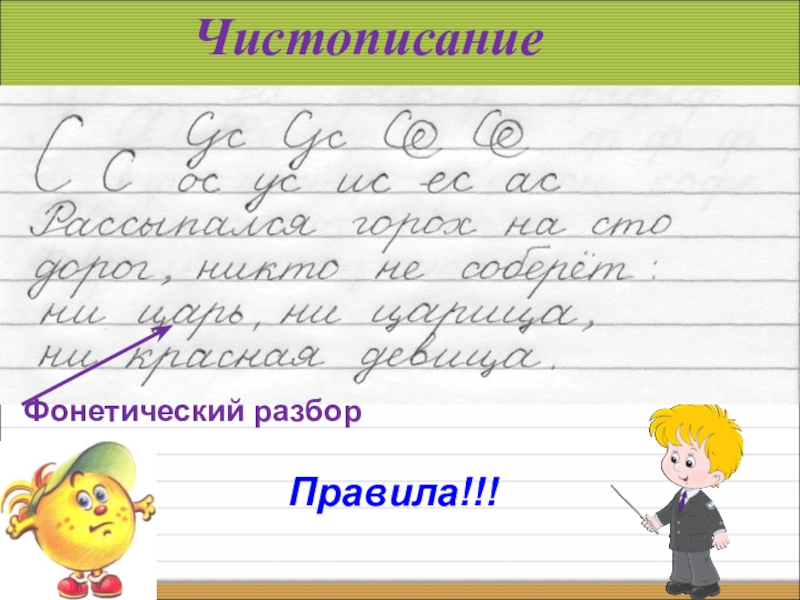 Чистописание
Сс Сс Се Се
С С ос ус ис ес ас
Рассыпался горох на сто
дорог, никто не соберёт:
ни царь, ни царица,
ни красная девица.
Фонетический разбор
Правила!!!